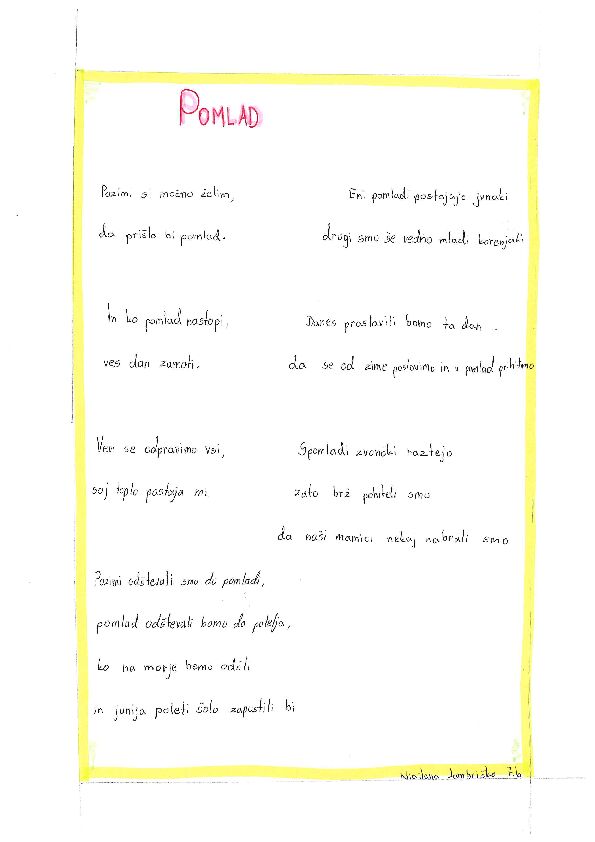 POMLAD
Pozimi si močno želim,
da prišla bi pomlad.
In ko pomlad nastopi,
ves dan zamoti.
Ven se odpravimo vsi,
saj toplo postaja mi.
Pozimi odštevali smo do pomladi,
pomlad odštevali bomo do poletja,
ko na morje bomo odšli
in junija poleti šolo zapustili bi
Eni pomladi postajajo junaki
drugi smo še vedno mladi korenjaki
Danes praslavili bomo ta dan
da se od zime poslovimo in v pomlad prihitimo
Spomladi zvončki raztejo
zato brž pohiteli smo
da naši mamici nekaj nabrali smo
7.b